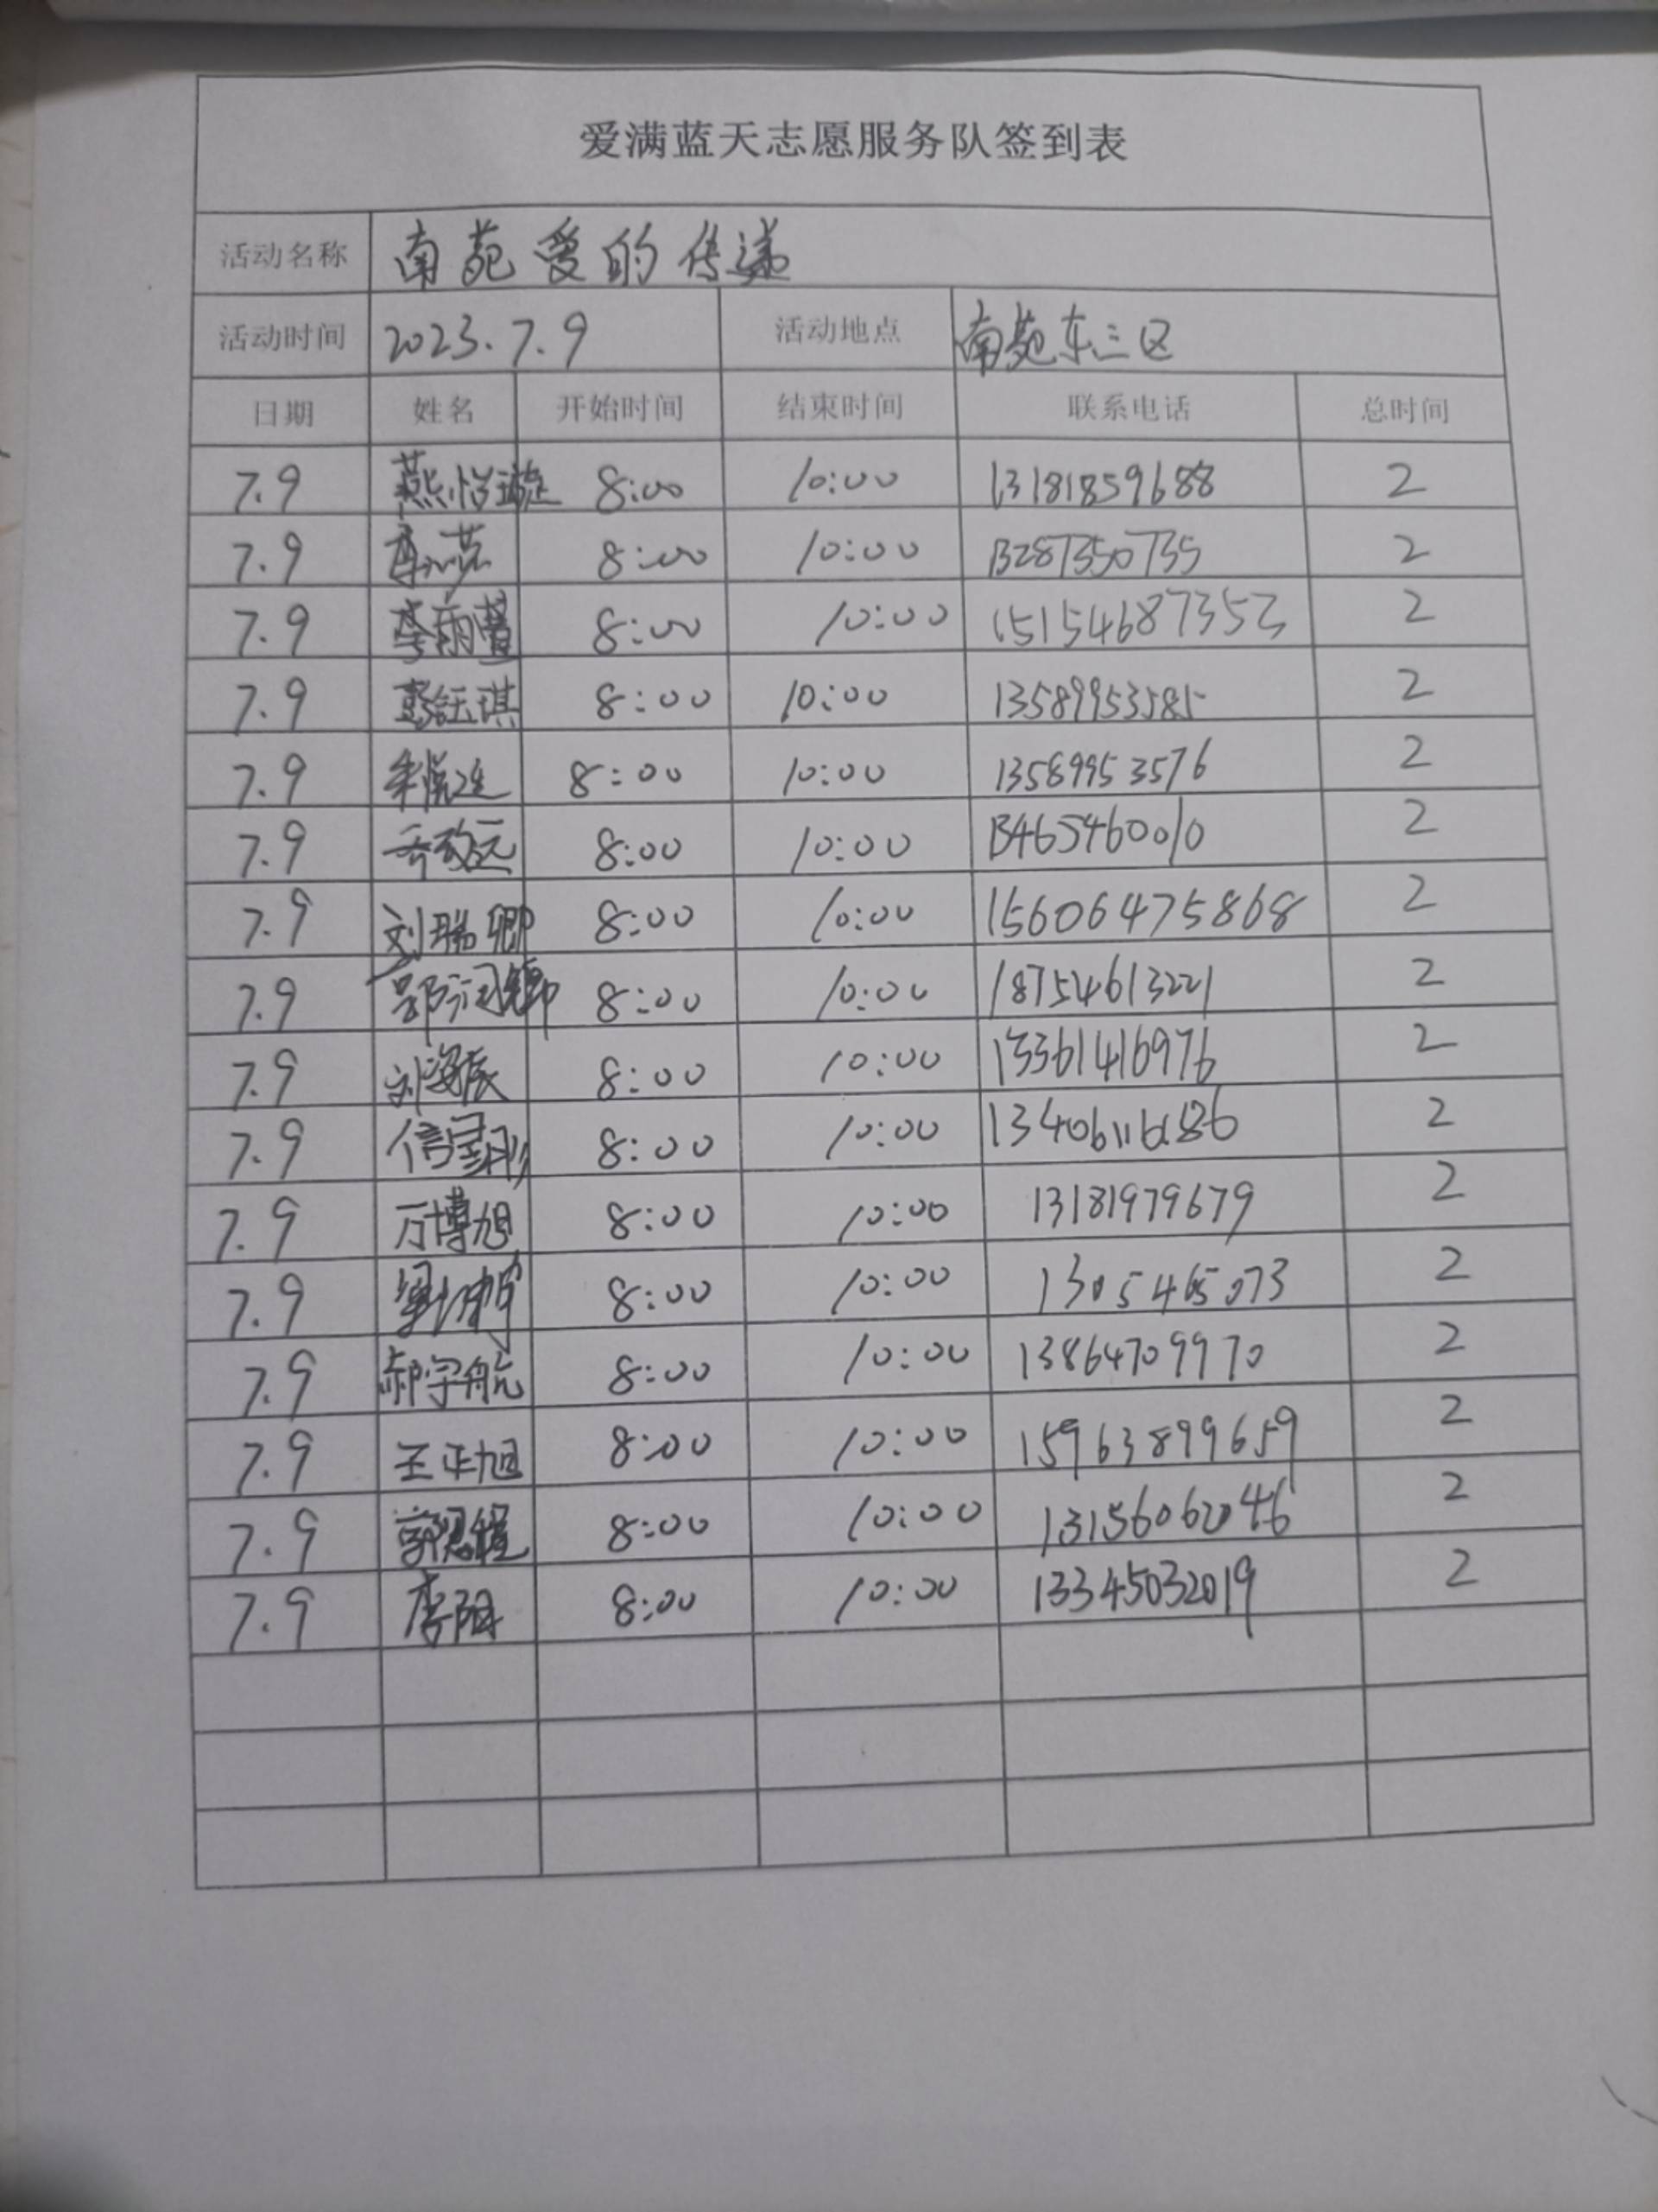 爱满蓝天志愿服务队签到表
活动名称 南苑爱的传递
活动时间 2023.7.9 活动地点 南苑东三区
日期 姓名 开始时间 结束时间 联系电话 总时间
7.9 燕怡璇 8:00 10:00 13181859688 2
7.9 8:00 10:00 13287350735 2
7.9 李雨萱 8:00 10:00 15154687353 2
7.9 钰琪 8:00 10:00 13589953585 2
7.9 8:00 10:00 13589953576 2
7.9 8:00 10:00 13465460010 2
7.9 刘瑞卿 8:00 10:00 15606475868 2
7.9 8:00 10:00 18754613221 2
7.9 刘姿辰 8:00 10:00 13361416976 2
7.9 8:00 10:00 2
7.9 万博旭 8:00 10:00 13181979679 2
7.9 8:00 10:00 2
7.9 郝宇航 8:00 10:00 13864709970 2
7.9 王正旭 8:00 10:00 15963899659 2
7.9 8:00 10:00 13156062046 2
7.9 李阳 8:00 10:00 13345032019 2